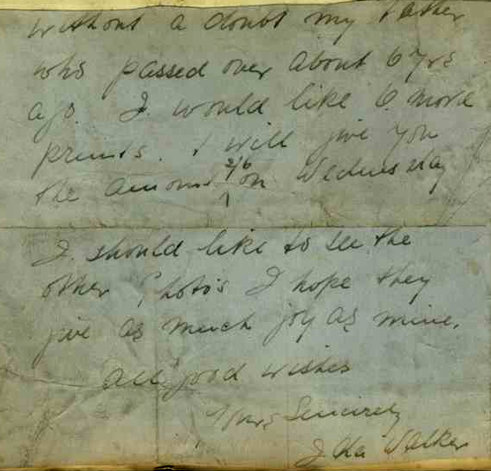 without a doubt my Father
who passed over about 6 yrs
ago. I would like 6 more
prints. I will give you
the amount 2/6 on Wednesday
I should like to see the
other Photo's I hope they
give as much joy as mine.
all good wishes
Yours Sincerely
Ida Walker